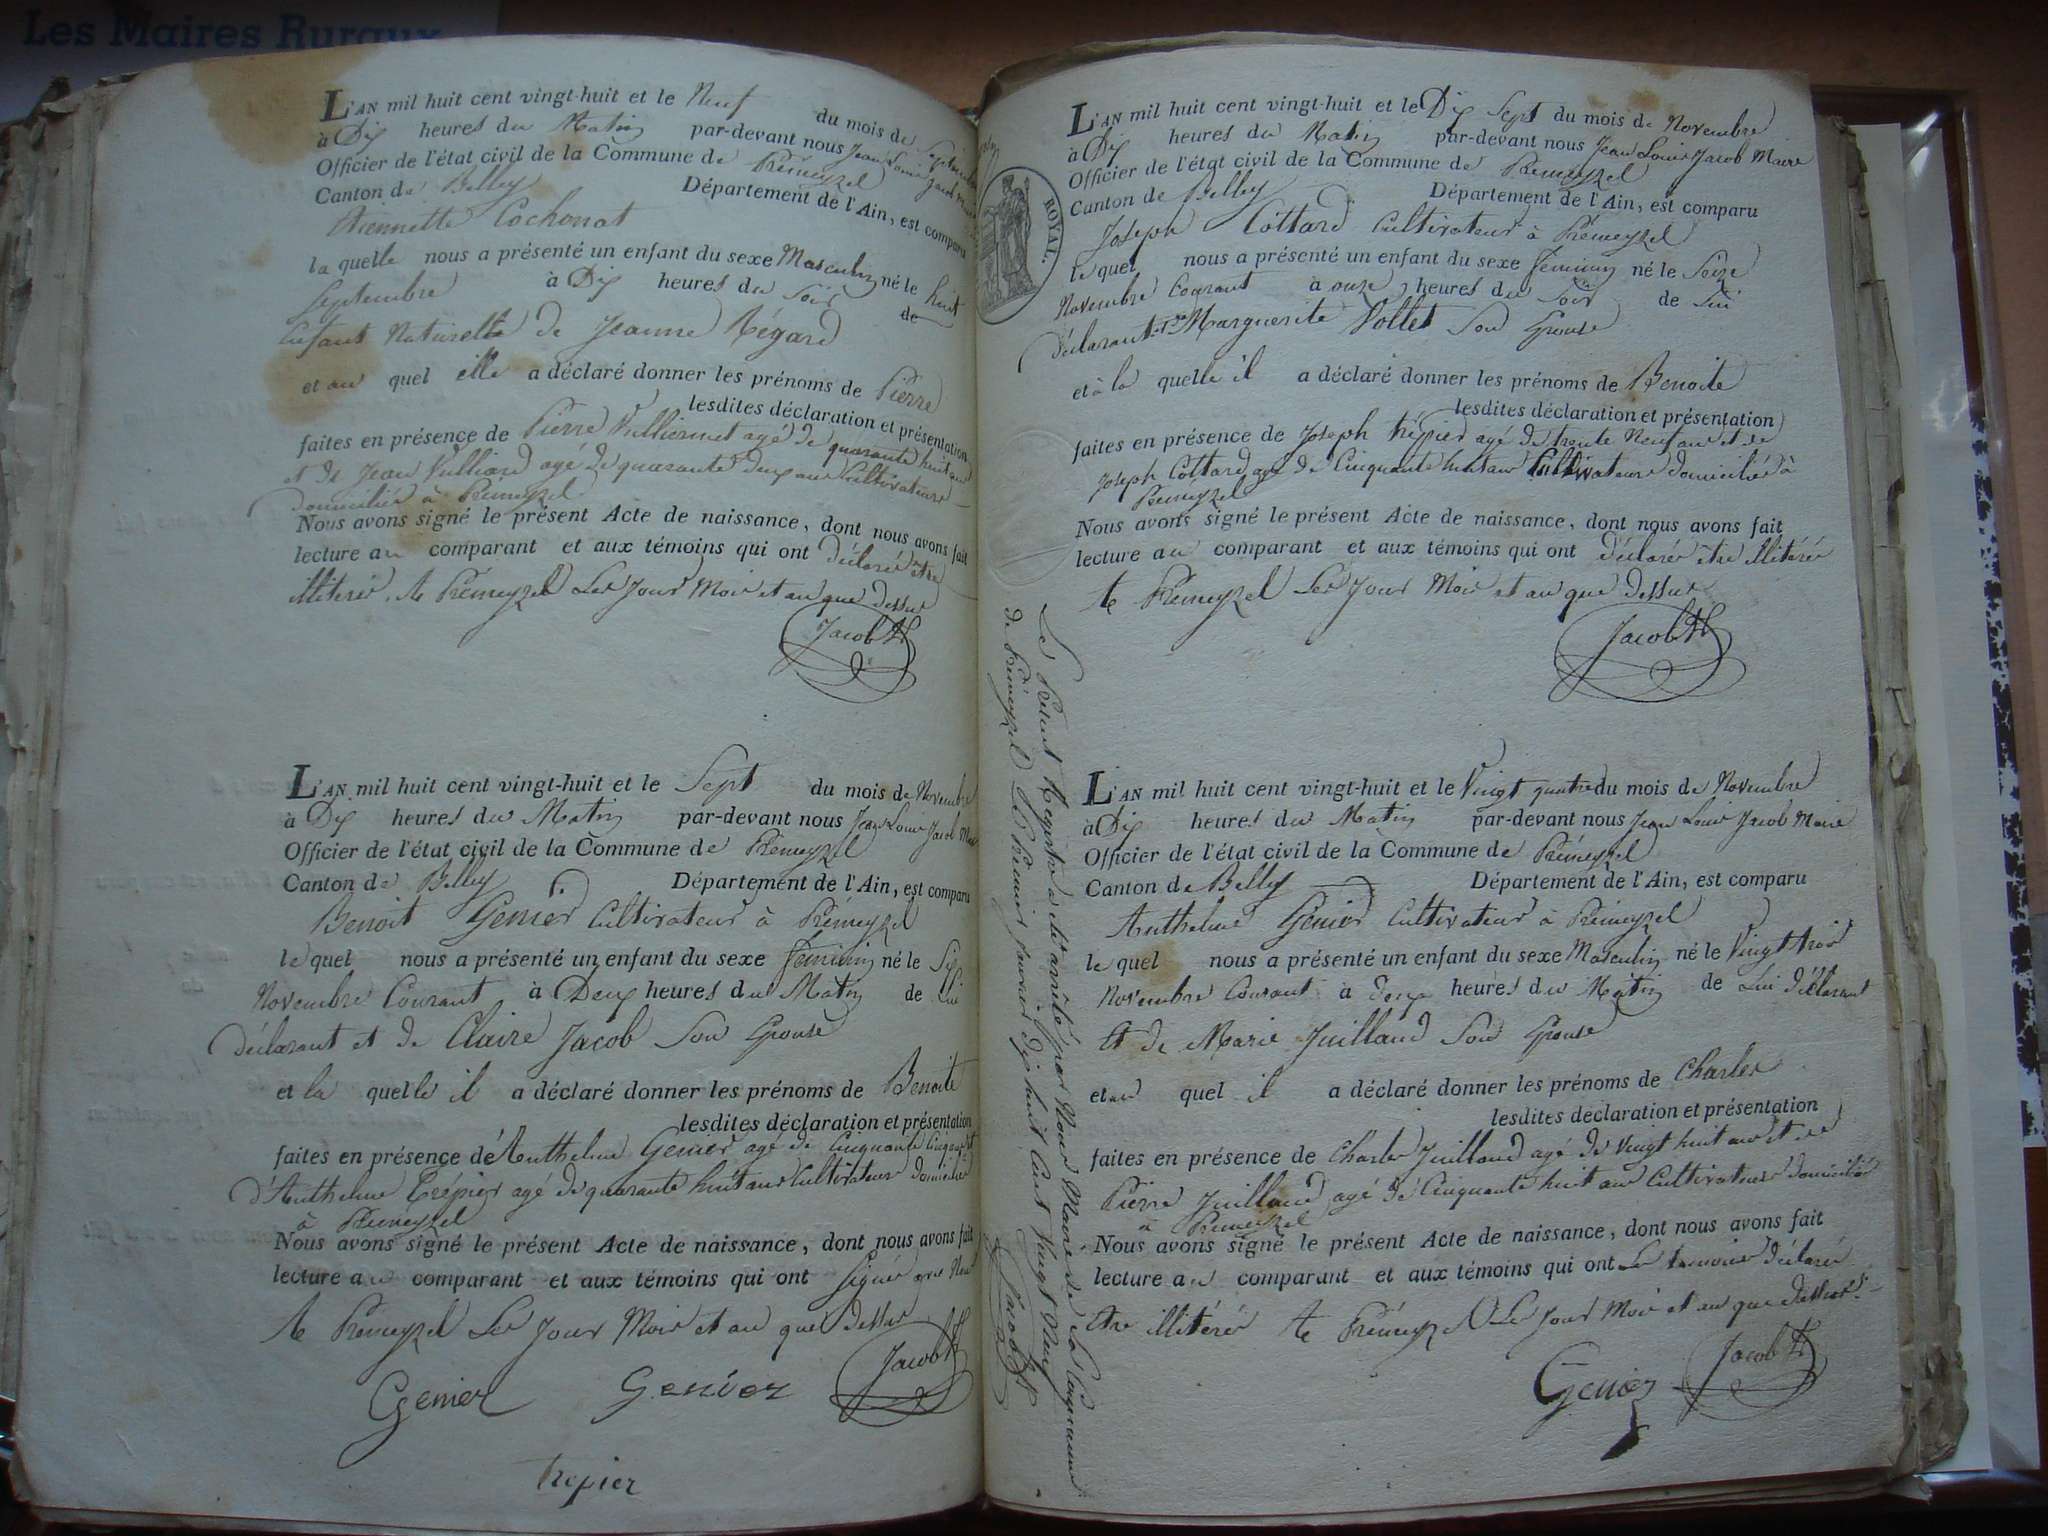 Les Maires Ruraux
L'AN mil huit cent vingt-huit et le Neuf du mois de Septembre
à Dix heures du Matin par-devant nous Jean Louis Jacob Maire
Officier de l'état civil de la Commune de Prémeyzel
Canton de Belley Département de l'Ain, est comparu
Pierrette Cochonat
la quelle nous a présenté un enfant du sexe Masculin né le huit
Septembre à Dix heures du Soir de
Enfant Naturelle de Jeanne Régard
et au quel elle a déclaré donner les prénoms de Pierre
lesdites déclaration et présentation
faites en présence de Pierre Vulliermet agé de quarante huit ans
et de Jean Vulliard agé de quarante deux ans Cultivateurs
domicilié à Prémeyzel
Nous avons signé le présent Acte de naissance, dont nous avons fait
lecture au comparant et aux témoins qui ont déclaré être
illitéré. A Prémeyzel Les Jour Mois et an que dessus
Jacob
L'AN mil huit cent vingt-huit et le Sept du mois de Novembre
à Dix heures du Matin par-devant nous Jean Louis Jacob Maire
Officier de l'état civil de la Commune de Prémeyzel
Canton de Belley Département de l'Ain, est comparu
Benoit Genier Cultivateur à Prémeyzel
le quel nous a présenté un enfant du sexe féminin né le Six
Novembre Courant à Deux heures du Matin de Lui
déclarant et de Claire Jacob Son Epouse
et la quelle il a déclaré donner les prénoms de Benoite
lesdites déclaration et présentation
faites en présence d'Anthelme Genier agé de Cinquante Cinq ans et
d'Anthelme Trépier agé de quarante huit ans Cultivateurs domicilié
à Prémeyzel
Nous avons signé le présent Acte de naissance, dont nous avons fait
lecture au comparant et aux témoins qui ont signé avec Nous
A Prémeyzel Les Jour Mois et an que dessus
Genier Genier Jacob
trepier
ROYAL.
Le Présent Registre a été arrêté par Nous Maire de La Commune
de Prémeyzel Le Premier Janvier dix huit Cent Vingt Neuf
Jacob
L'AN mil huit cent vingt-huit et le Dix Sept du mois de Novembre
à Dix heures du Matin par-devant nous Jean Louis Jacob Maire
Officier de l'état civil de la Commune de Prémeyzel
Canton de Belley Département de l'Ain, est comparu
Joseph Cottard Cultivateur à Prémeyzel
le quel nous a présenté un enfant du sexe féminin né le Seize
Novembre Courant à onze heures du Soir de Lui
déclarant Marguerite Vollet Son Epouse
et à la quelle il a déclaré donner les prénoms de Benoite
lesdites déclaration et présentation
faites en présence de Joseph trépier agé de trente Neuf ans et de
Joseph Cottard agé de Cinquante huit ans Cultivateurs domicilié à
Prémeyzel
Nous avons signé le présent Acte de naissance, dont nous avons fait
lecture au comparant et aux témoins qui ont déclaré être illitéré
A Prémeyzel Les Jour Mois et an que dessus
Jacob
L'AN mil huit cent vingt-huit et le Vingt quatre du mois de Novembre
à Dix heures du Matin par-devant nous Jean Louis Jacob Maire
Officier de l'état civil de la Commune de Prémeyzel
Canton de Belley Département de l'Ain, est comparu
Anthelme Genier Cultivateur à Prémeyzel
le quel nous a présenté un enfant du sexe Masculin né le Vingt trois
Novembre Courant à deux heures du Matin de Lui déclarant
Et de Marie Juilland Son Epouse
et au quel il a déclaré donner les prénoms de Charles
lesdites déclaration et présentation
faites en présence de Charles Juilland agé de Vingt huit ans et de
Pierre Juilland agé de Cinquante huit ans Cultivateurs domicilié
à Prémeyzel
Nous avons signé le présent Acte de naissance, dont nous avons fait
lecture au comparant et aux témoins qui ont Les temoins déclaré
être illitéré A Prémeyzel Les Jour Mois et an que dessus.
Genier Jacob